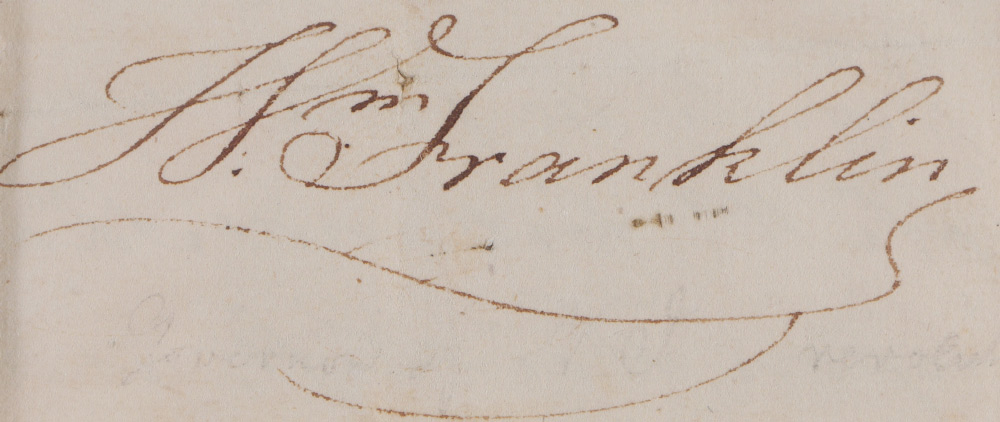 Wm Franklin
Governor